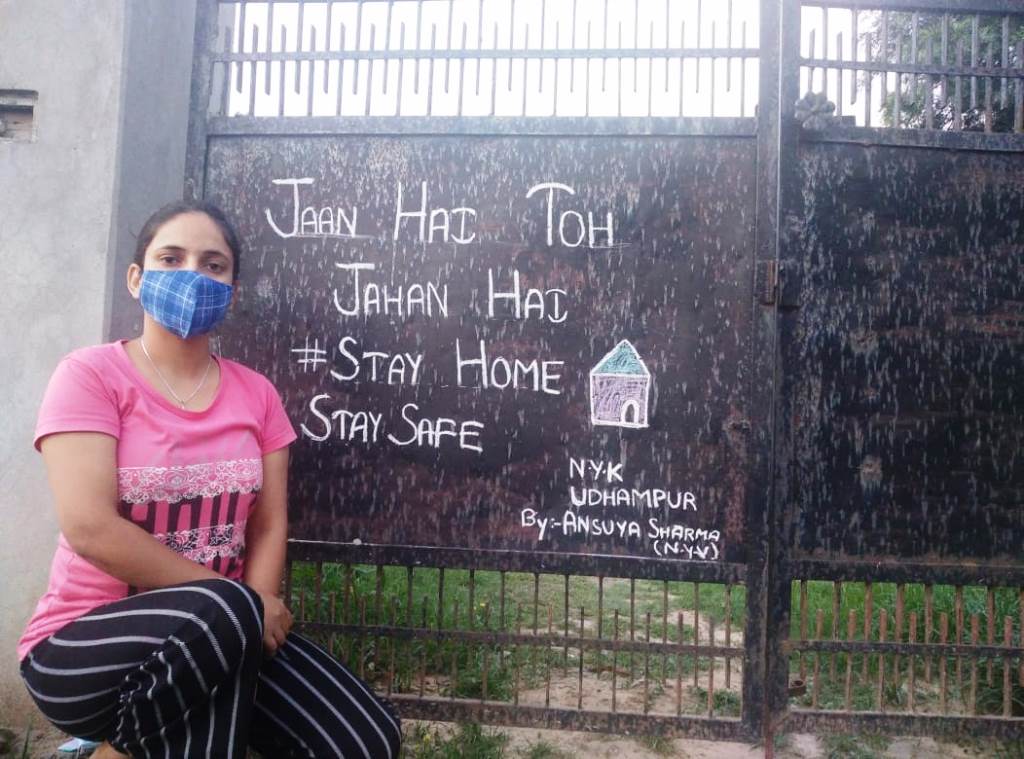 JAAN HAI TOH
JAHAN HAI
#STAY HOME
STAY SAFE
N.Y.K
UDHAMPUR
By:-ANSUYA SHARMA
(N.Y.V)